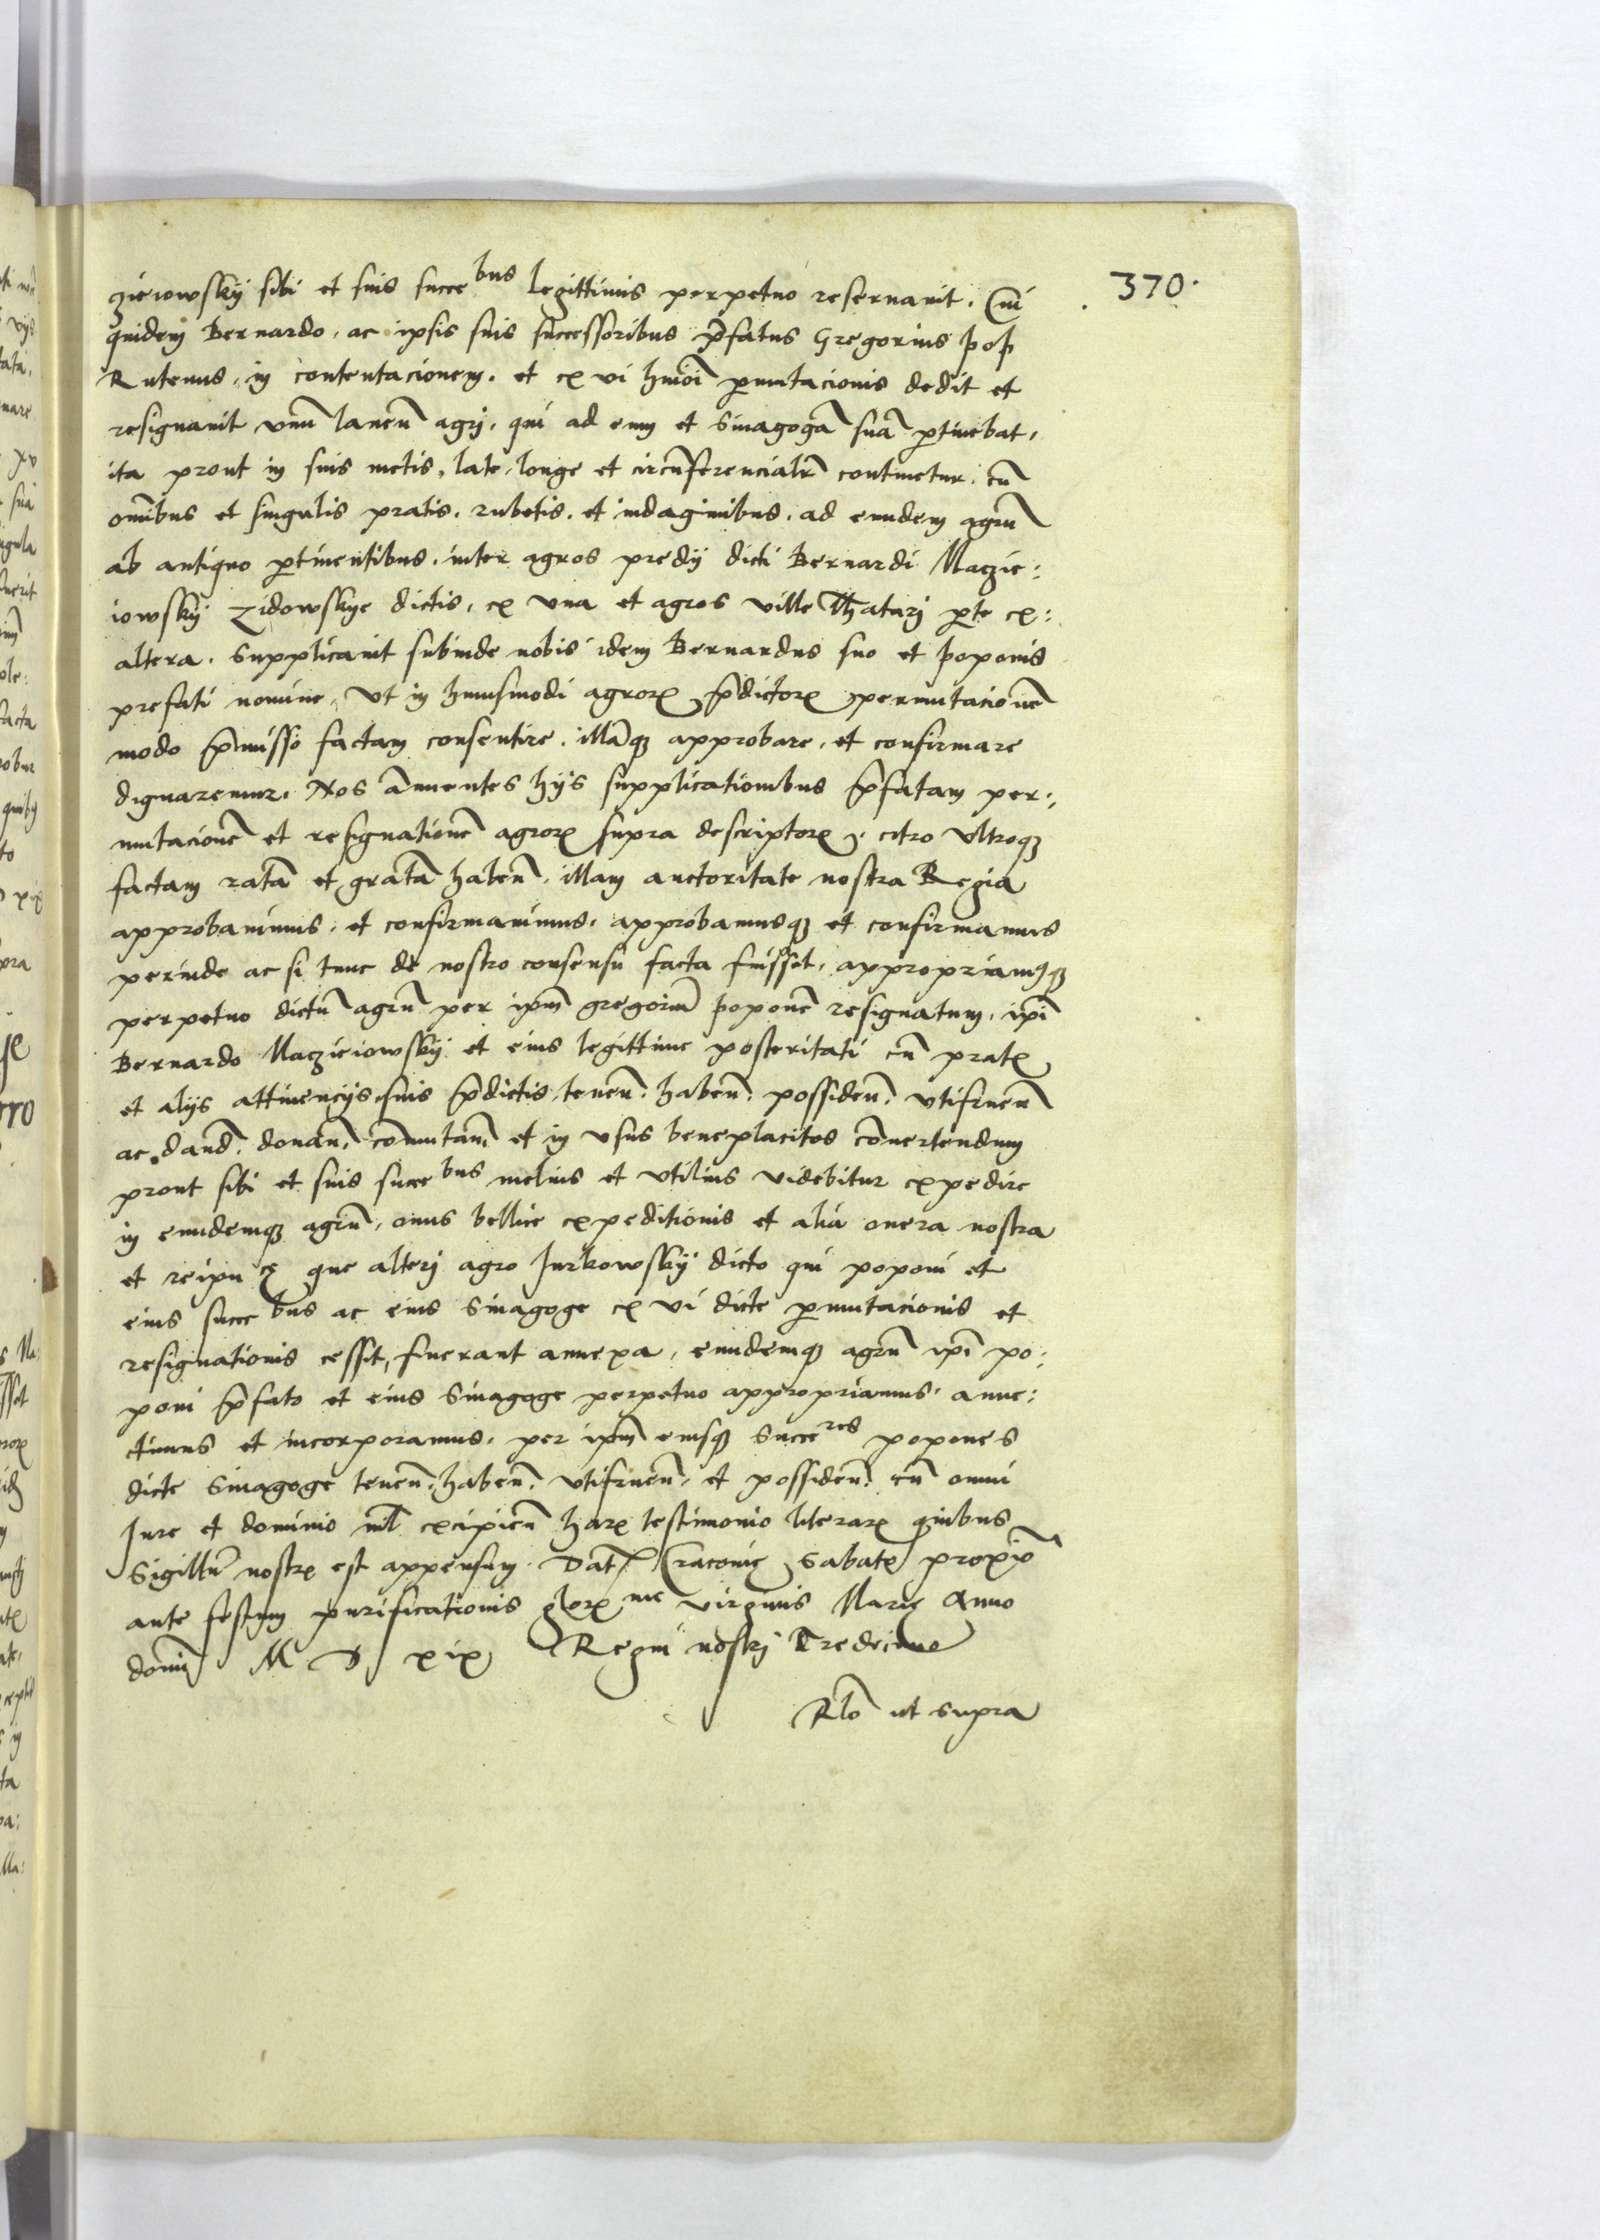 370.
zieiowskij sibi et suis succebus legittimis perpetuo reseruauit. Cui
quidem Bernardo. ac ipsis suis successoribus p̄fatus Gregorius pop
Rutenus, in contentacionem. et ex vi hmōi ꝑmutacionis dedit et
resignauit vnū laneū agrj. qui ad eum et sinagogā suā ꝑtinebat,
ita prout in suis metis, late, longe et circūferencialr̄ continetur. cū
om̄ibus et singulis pratis. rubetis. et indaginibus. ad eundem agrū
ab antiquo ꝑtinentibus. inter agros predij dicti Bernardi Maczie:
iowskij Zidowskye dictis, ex vna et agros ville Thatarj ꝑte ex:
altera. Supplicauit subinde nobis idem Bernardus suo et poponis
prefati nomine, Vt in huiusmodi agroꝝ p̄dictoꝝ permutacionē
modo p̄misso factam consentire. illāqꝫ approbare, et confirmare
dignaremur. Nos ānuentes hijs supplicationibus p̄fatam per:
mutacionē et resignationē agroꝝ supra descriptoꝝ, citro Vltroqꝫ
factam ratā et gratā haben̄. illam auctoritate nostra Regia
approbauimus. et confirmauimus. approbamusqꝫ et confirmamus
perinde ac si tunc de nostro consensu facta fuisset, appropriamusqꝫ
perpetuo dictū agrū per ip̄m gregoriū poponē resignatum, ip̄i
Bernardo Maczieiowskij et eius legittime posteritati cū pratꝭ
et alijs attinencijs suis p̄dictis, tenen̄. haben̄. possiden̄. vtifruen̄
ac dand̄. donan̄. cōmutan̄. et in vsus beneplacitos cōuertendum
prout sibi et suis succebus melius et vtilius videbitur expedire
in eundemqꝫ agrū, onus bellice expeditionis et alia onera nostra
et reipuce que alterj agro Jurkowskij dicto qui poponi et
eius succebus ac eius Sinagoge ex vi dicte ꝑmutacionis et
resignationis cessit, fuerant annexa, eundemqꝫ agrū ip̄i po:
poni p̄fato et eius Sinagoge perpetuo appropriamus. anne:
ctimus et incorporamus. per ip̄m eiusqꝫ succeres popones
dicte sinagoge tenen̄. haben̄. vtifruen̄. et possiden̄. cū omni
Jure et dominio nil̄ excipien̄ haꝝ testimonio literaꝝ quibus
Sigillū nostꝝ est appensum. Dat̄ Cracouie Sabatꝭ proxiō
ante festum purificationis gloꝝme virginis Marie Anno
domī M D xix Regni nostrj Tredecimo
Rlō ut supra